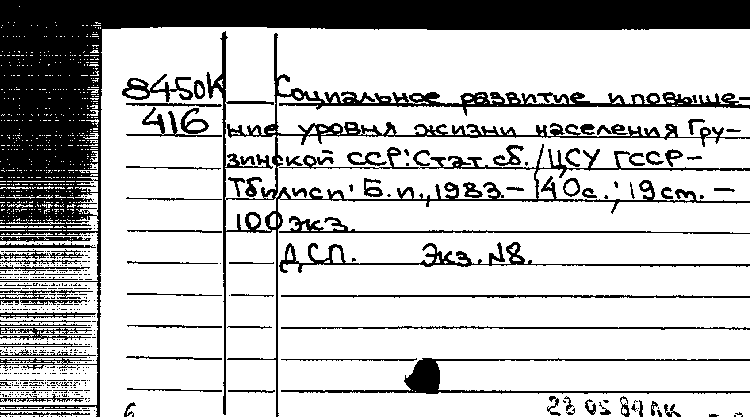 8450К Социальное развитие и повыше-
416 ние уровня жизни населения Гру-
зинской ССР: Стат. сб. / ЦСУ ГССР-
Тбилиси: Б.и., 1983.- 140с.; 19 cm. -
100 экз.
ДСП. Экз. N8.
28 05 89
6